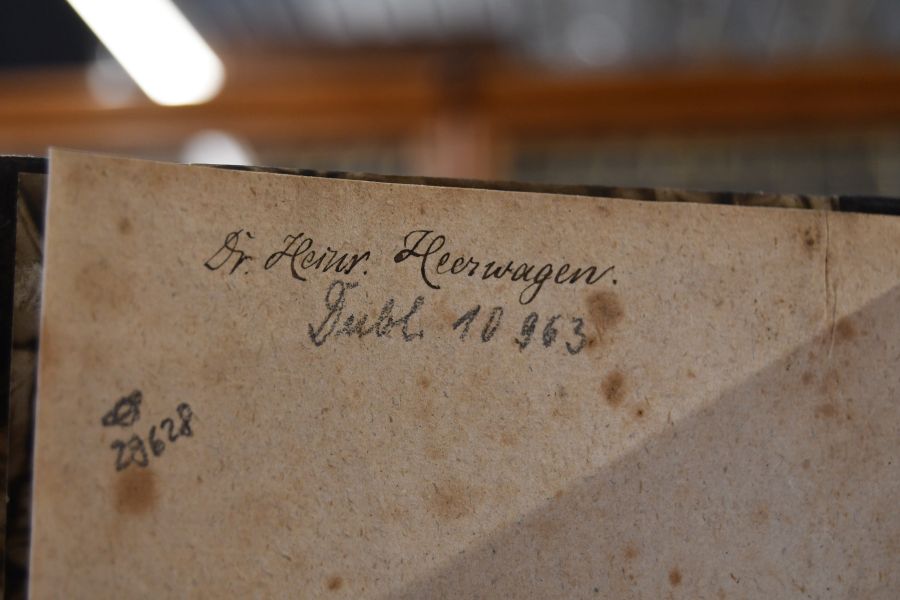 Dr. Heinr. Heerwagen.
Dubl. 10 963
29628